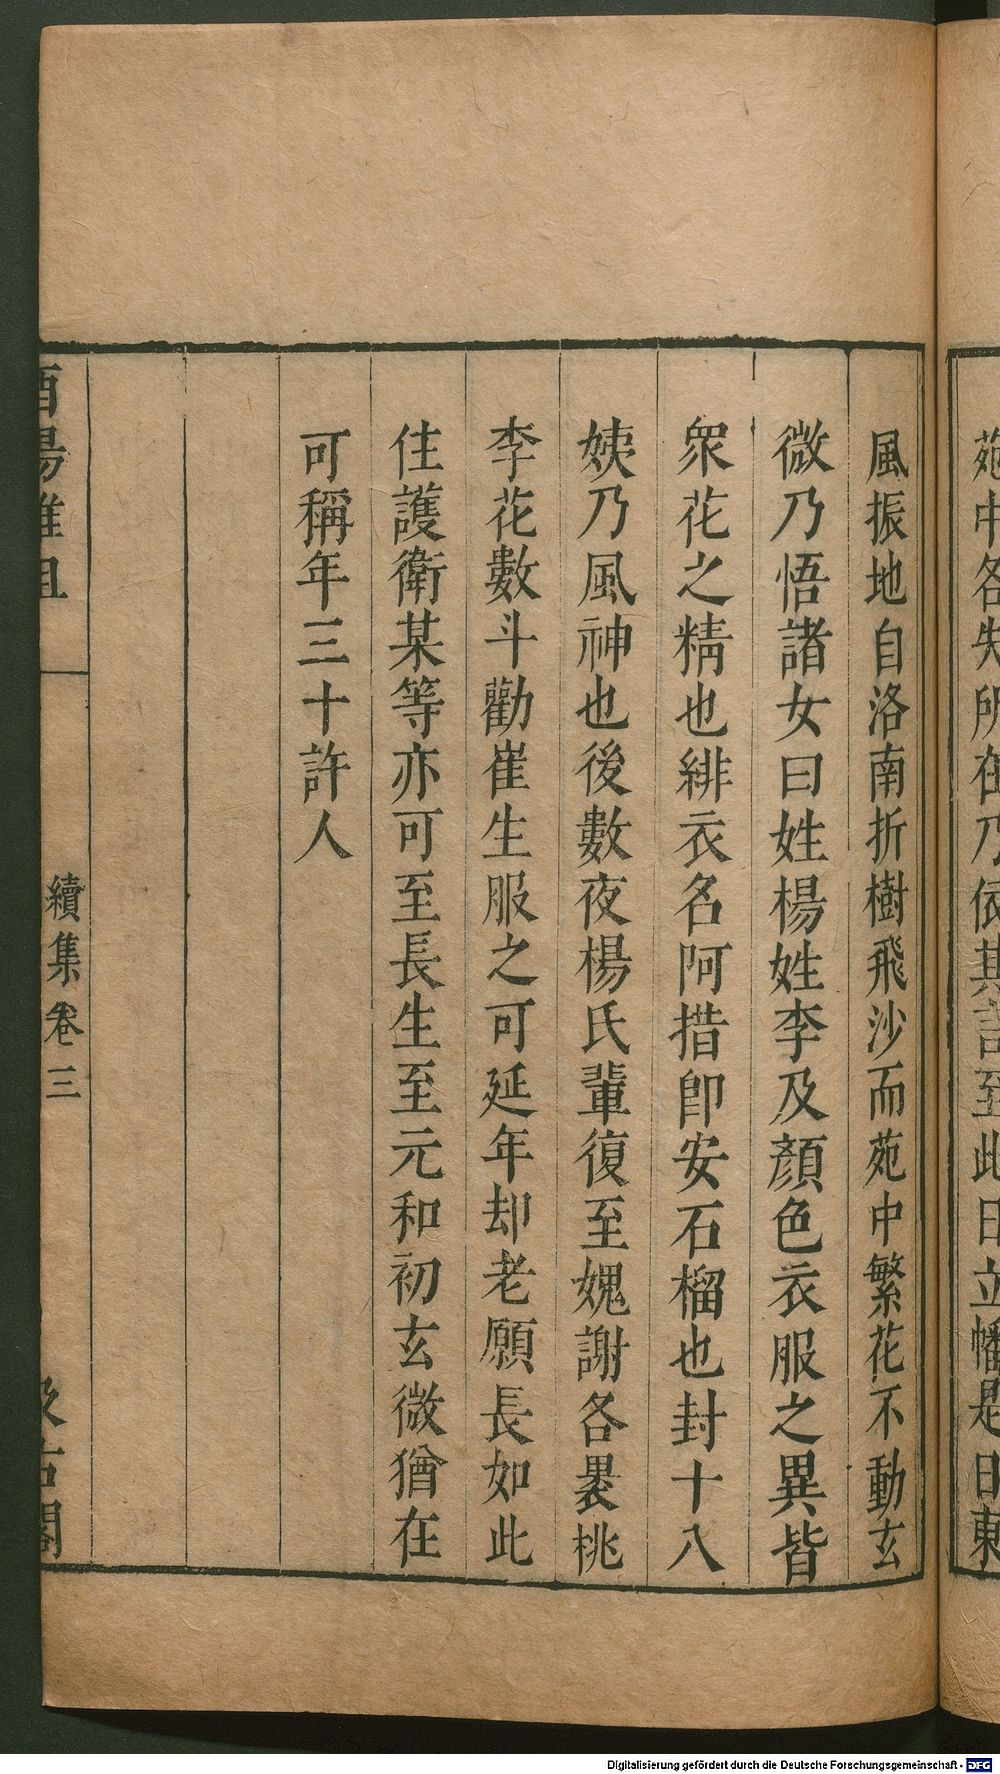 苑中各失所在乃依其言至此日立幡是日東
風振地自洛南折樹飛沙而苑中繁花不動玄
微乃悟諸女曰姓楊姓李及顏色衣服之異皆
衆花之精也緋衣名阿措卽安石榴也封十八
姨乃風神也後數夜楊氏輩復至媿謝各褁桃
李花數斗勸崔生服之可延年却老願長如此
住護衛某等亦可至長生至元和初玄微猶在
可稱年三十許人
酉陽雜俎
續集卷三
汲古閣
Digitalisierung gefördert durch die Deutsche Forschungsgemeinschaft - DFG